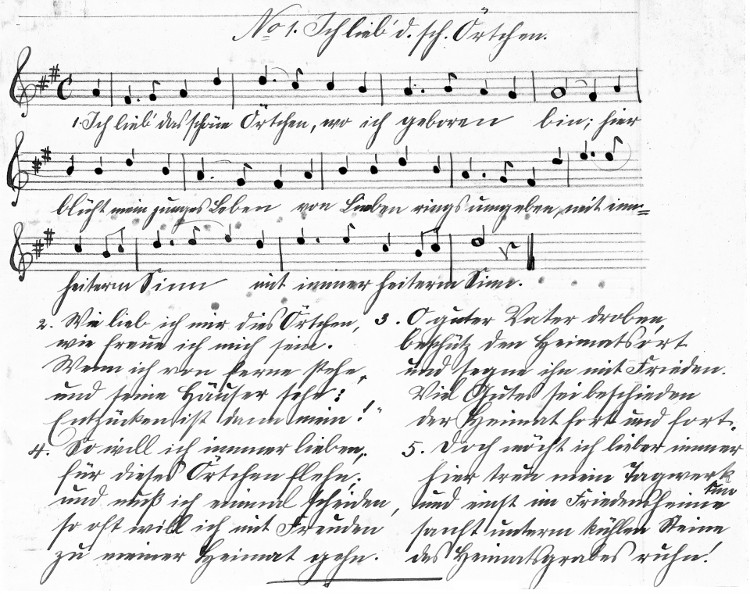 No 1. Ich lieb' d. sch. Örtchen.
1. Ich lieb' das schöne Örtchen, wo ich geboren bin; hier
blüht mein junges Leben von Lieben rings umgeben, mit imm=
heiterm Sinn mit immer heiterm Sinn.
2. Wie lieb ich mir dies Örtchen,
wie freue ich mich sein.
Wenn ich von ferne stehe,
und seine Häuser sehe:
Entzücken ist dann mein!"
3. O guter Vater droben,
beschütz den Heimatsort
und segne ihn mit Frieden.
Viel Gutes sei beschieden
der Heimat fort und fort.
4. So will ich immer lieben,
für dieses Örtchen flehn.
und muß ich einmal scheiden,
so oft will ich mit Freuden
zu meiner Heimat gehn.
5. Doch möcht ich lieber immer
hier treu mein Tagwerk tun
und einst im Friedensheime
sanft unterm kühlen Steine
des Heimatsgrabes ruhn!